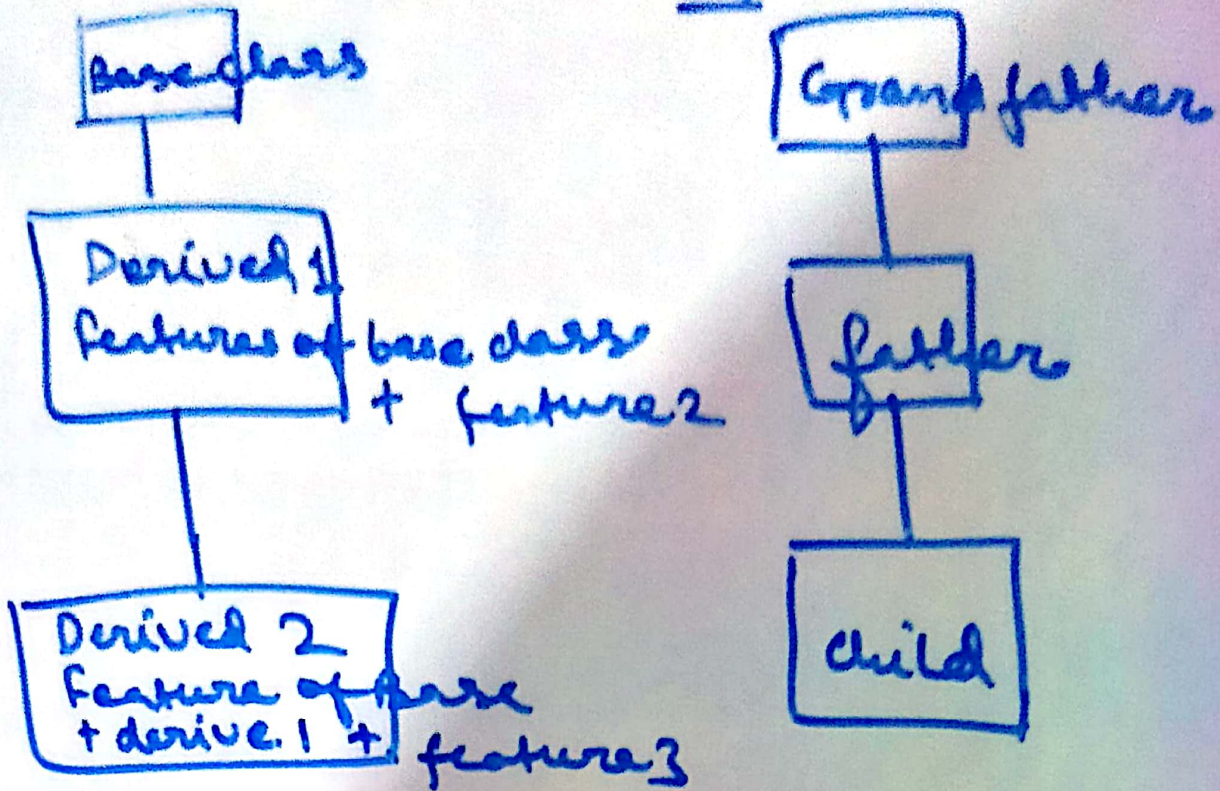 Base class
Derived 1
features of base class
+ feature 2
Derived 2
Feature of base
+ derive. 1 +
feature 3
Grand father
father
child